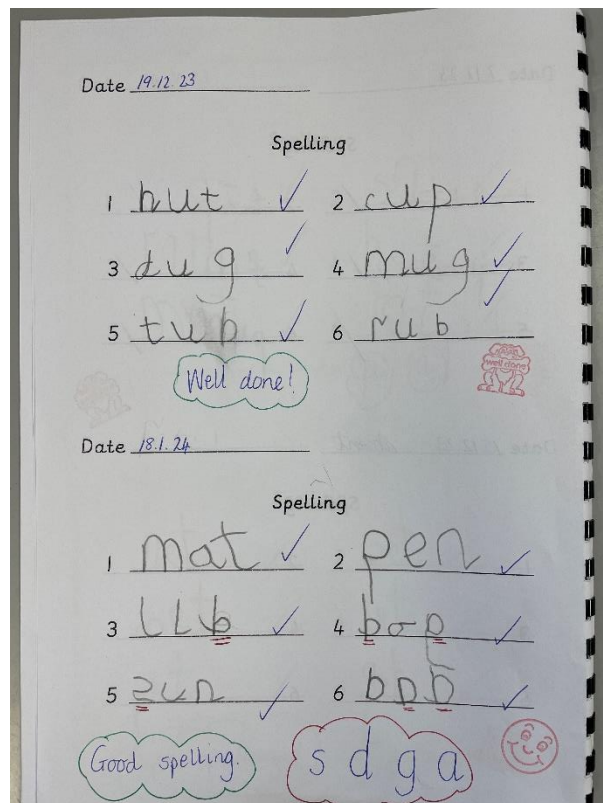 Date 19.12.23
Spelling
1 nut 2 cup
3 dug 4 mug
5 tub 6 rub
Well done!
well done
Date 18.1.24
Spelling
1 mat 2 pen
3 4
5 sun 6
Good spelling. s d g a